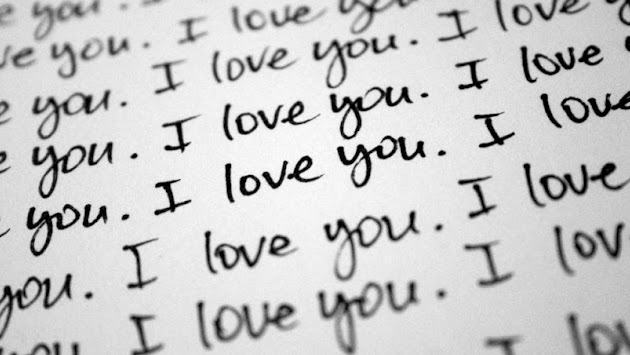 you.
ve you. I love you
e you. I love you. I love
e you. I love you. I love
e you. I love you. I love
you. I love you. I love
you. I love you. I lov
I lo